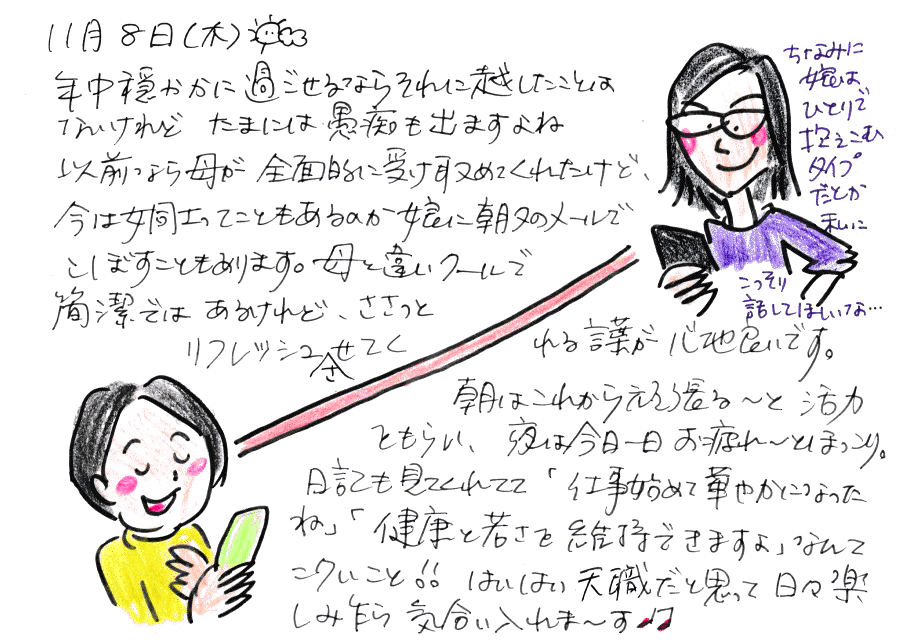 11月8日(木)
年中穏やかに過ごせるならそれに越したことは
ないけれど たまには愚痴も出ますよね
以前なら母が全面的に受け取めてくれたけど、
今は女同士ってこともあるのか娘に朝夕のメールで
こぼすこともあります。母と違いクールで
簡潔では あるけれど、ささっと
リフレッシュさせてくれる言葉が心地良いです。
朝はこれから頑張る〜と 活力
ともらい、夜は今日一日 お疲れ〜とほっこり。
日記も見てくれてて「仕事始めて華やかになった
ね」「健康と若さを維持できますよ」なんて
こワいこと!! はいはい天職だと思って日々楽
しみ乍ら 気合い入れま〜す♪♫
ちなみに
娘は
ひとりで
抱えこむ
タイプ
だとか
私に
こっそり
話してほしいな…